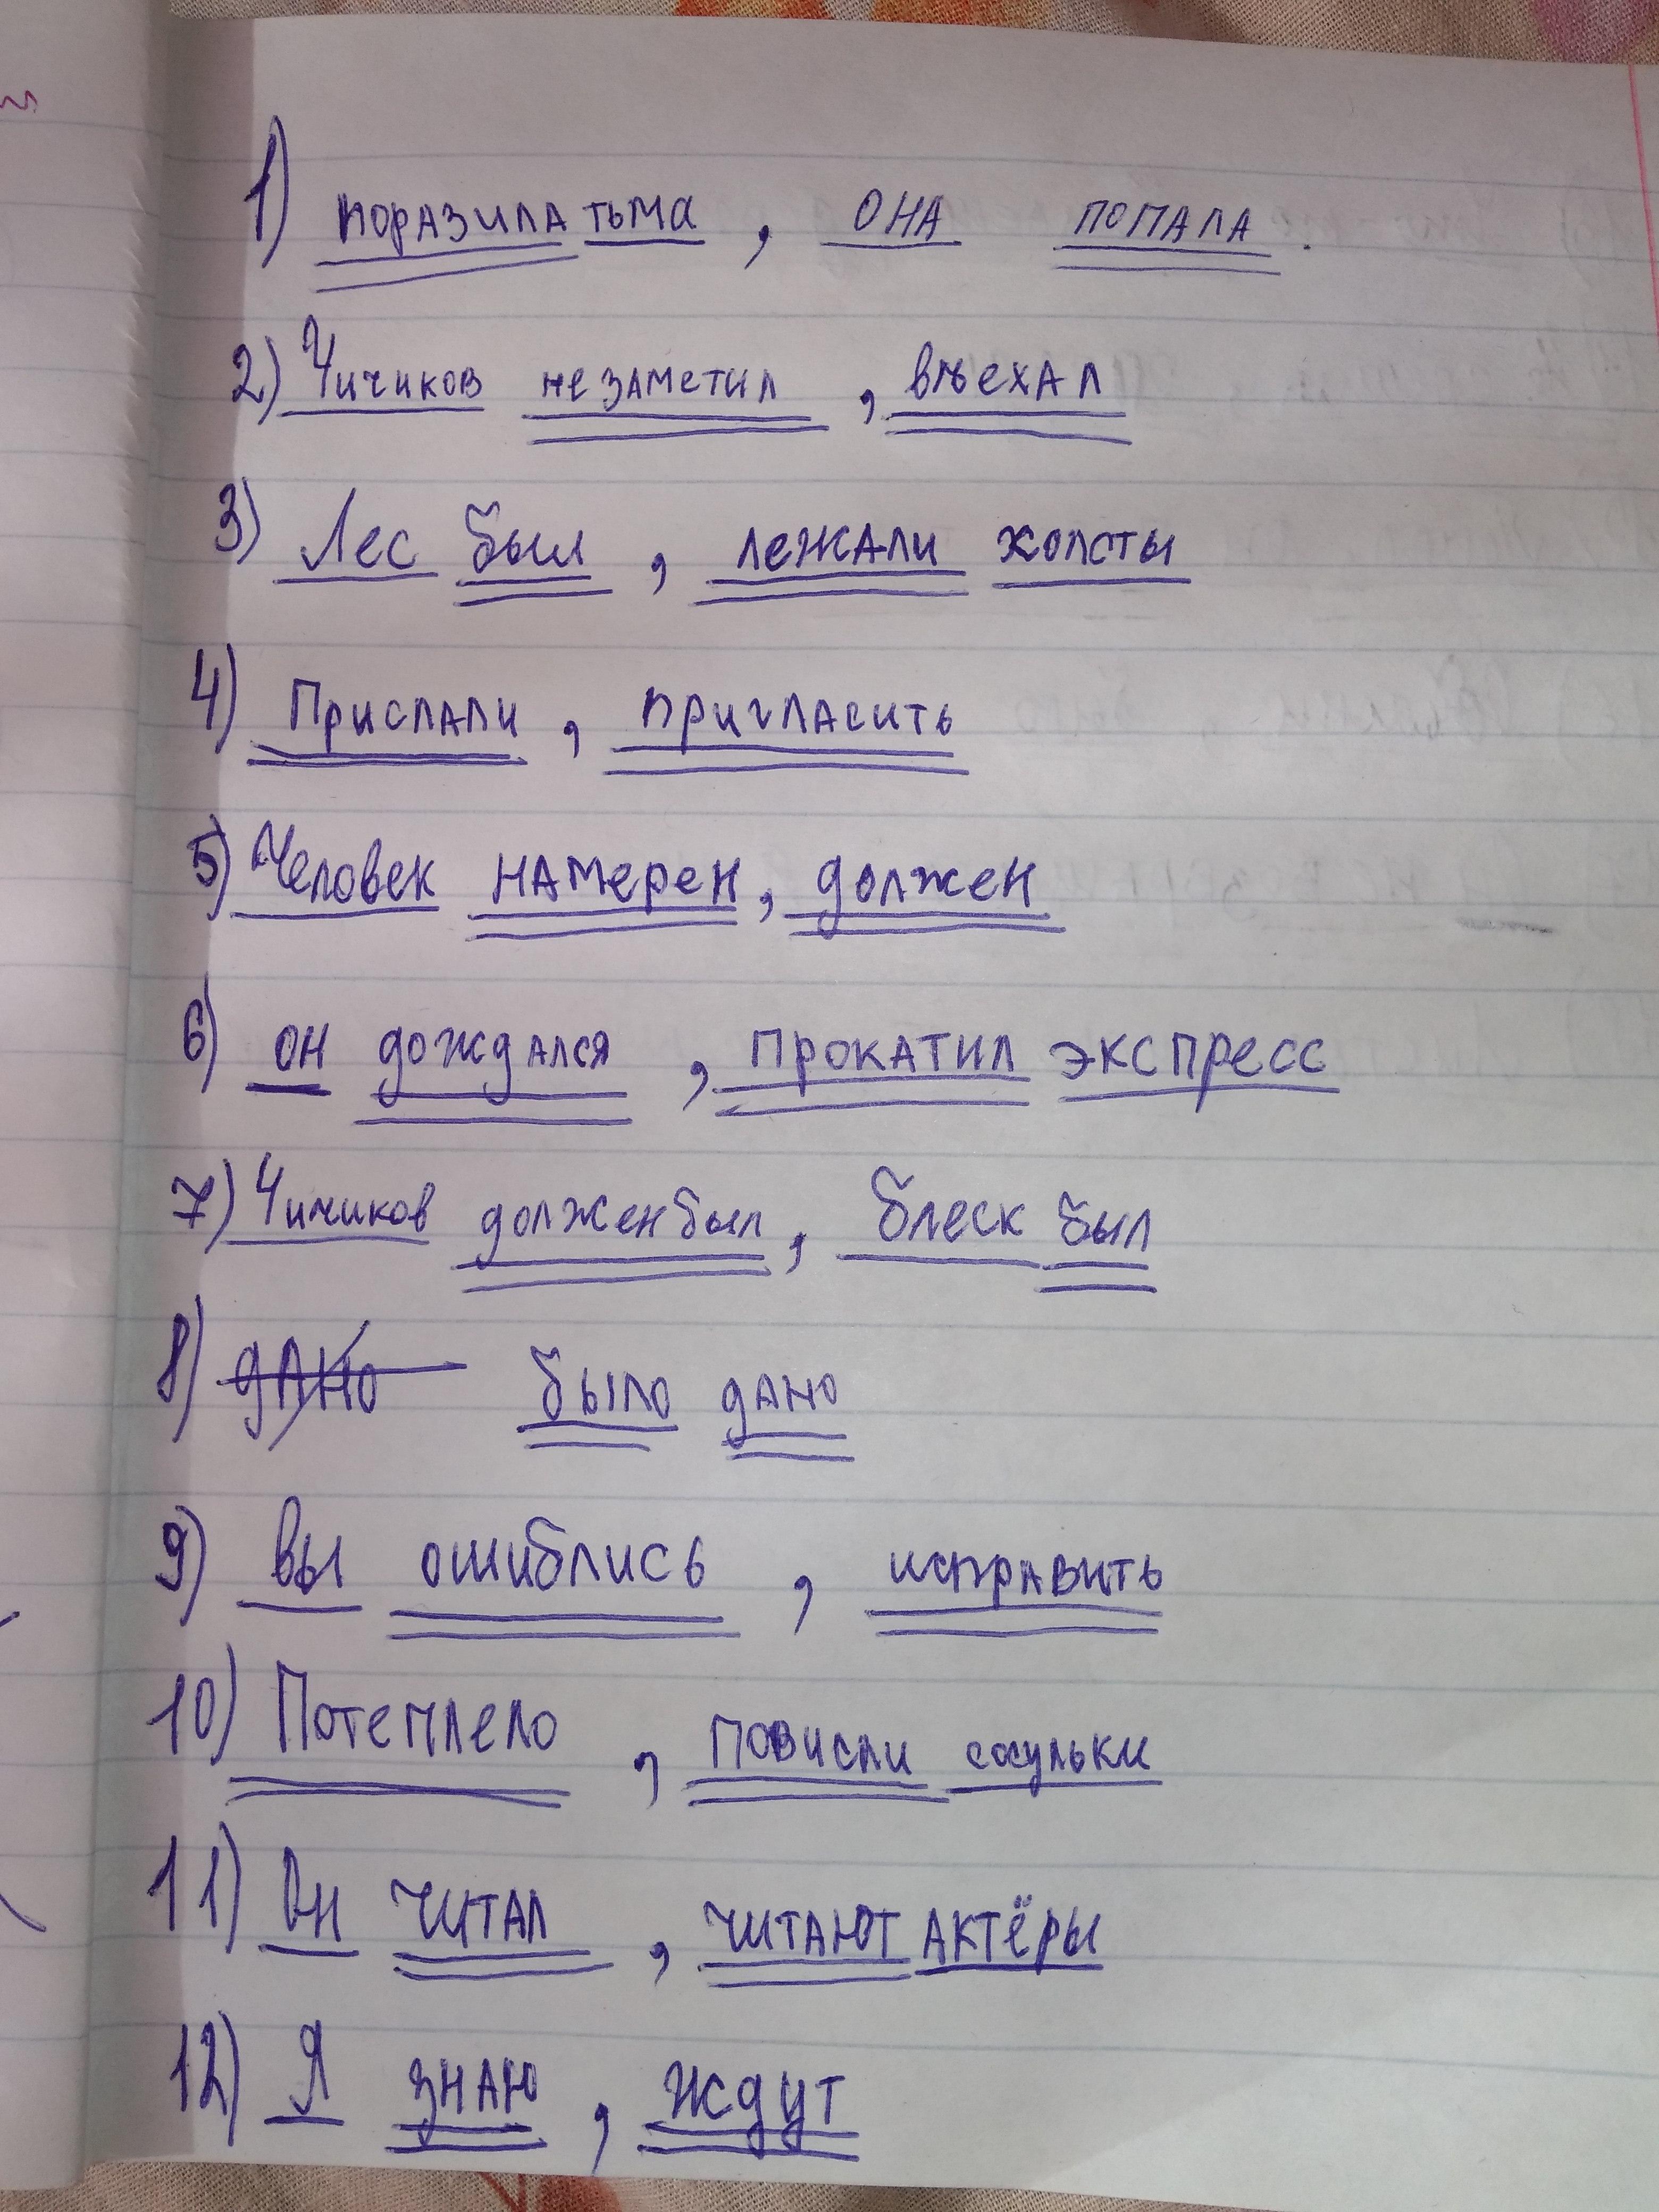 1) поразила тьма , она попала .
2) Чичиков не заметил , въехал
3) Лес был , лежали холсты
4) Прислали , пригласить
5) Человек намерен , должен
6) он дождался , прокатил экспресс
7) Чичиков должен был , блеск был
8) дано было дано
9) вы ошиблись , исправить
10) Потеплело , повисли сосульки
11) Он читал , читают актёры
12) Я знаю , ждут